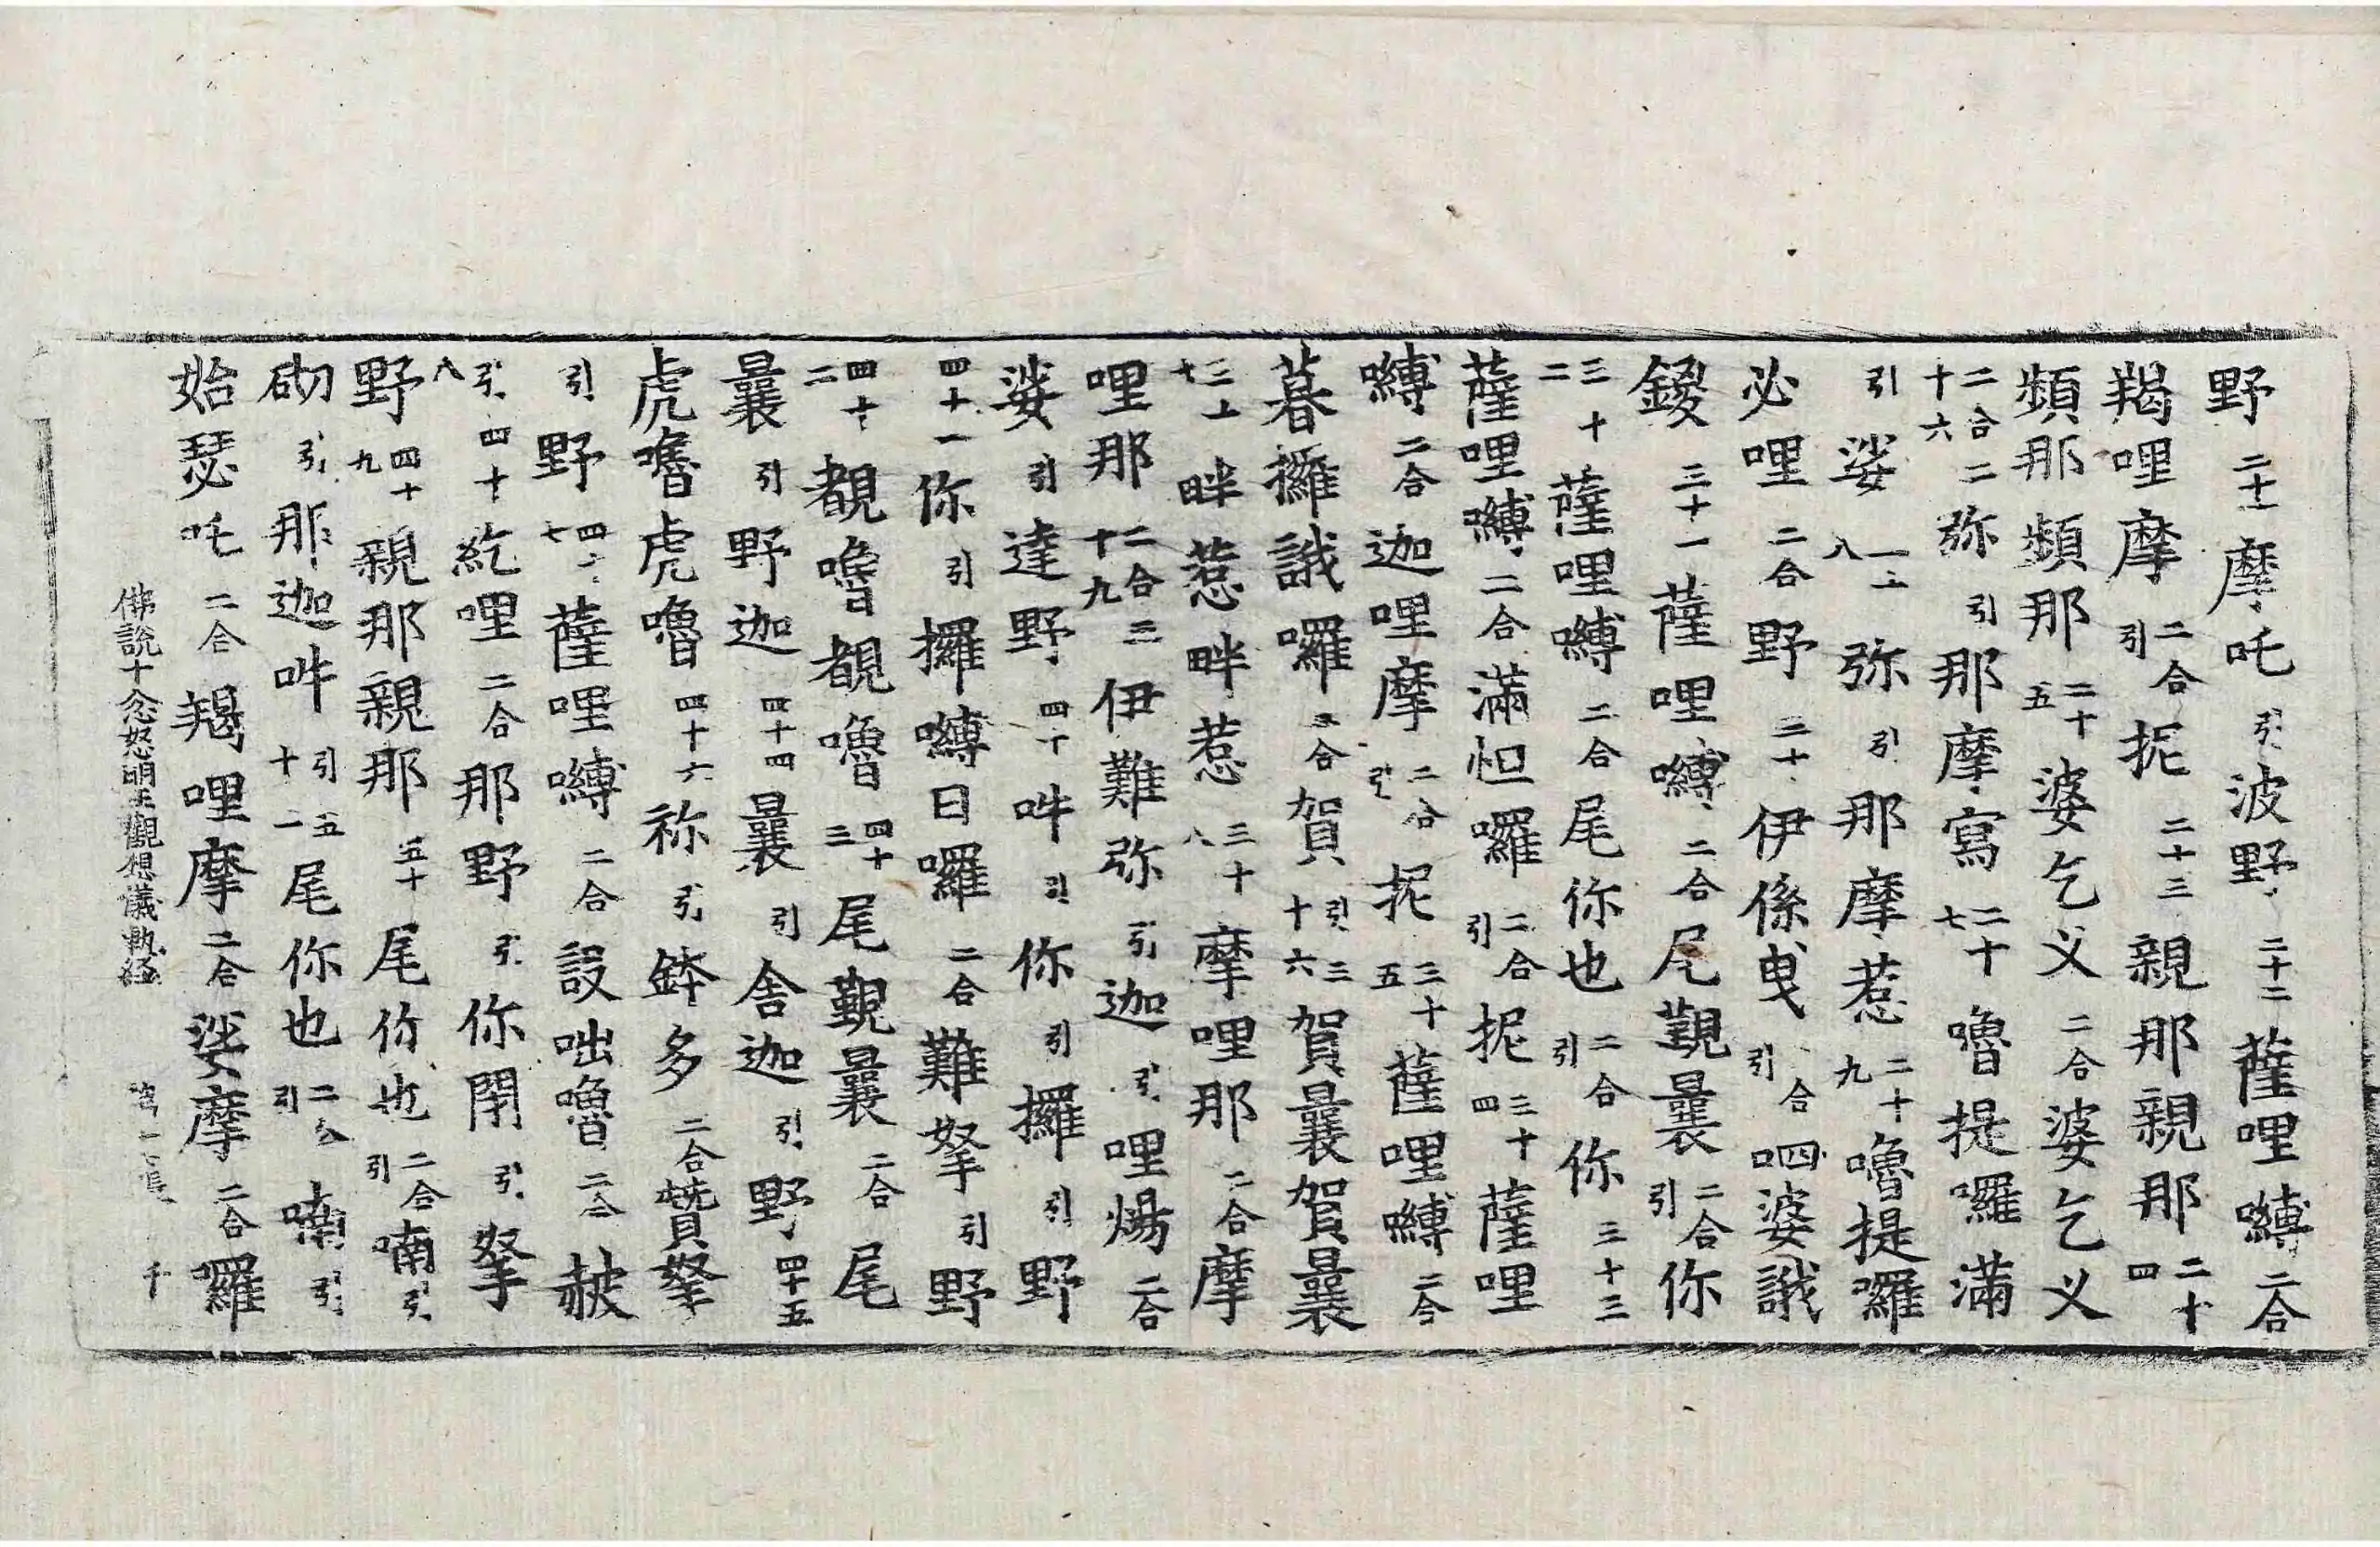 野二十一摩吒引波野二十二薩哩嚩二合
羯哩摩二合引抳二十三親那親那二十四
頻那頻那二十五婆乞义二合婆乞义
二合二十六弥引那摩寫二十七嚕提囉滿
引娑弥引那摩惹二十九嚕提囉
必哩二合野三十伊係曳合引呬婆誐
鑁三十一薩哩嚩二合尾覲曩二合引你
三十二薩哩嚩二合尾你也二合引你三十三
薩哩嚩二合滿怛囉二合引抳三十四薩哩
嚩二合迦哩摩二合引抳三十五薩哩嚩二合
暮攞誐囉合賀引三十六賀曩賀曩
三十七畔惹畔惹三十八摩哩那二合摩
哩那二合三十九伊難弥引迦引哩煬二合
娑引達野四十吽引你引攞引野
四十一你引攞嚩日囉二合難拏引野
四十二覩嚕覩嚕四十三尾覲曩二合尾
曩引野迦四十四曩引舍迦引野四十五
虎嚕虎嚕四十六祢引鉢多二合贊拏
引野四十七薩哩嚩二合設咄嚕二合赦
引四十八紇哩二合那野引你閉引拏
野四十九親那親那五十尾你也二合引喃引
砌引那迦吽引五十一尾你也二合引喃引
始瑟吒二合羯哩摩二合娑摩二合羅
佛說十忿怒明王觀想儀軌経 千